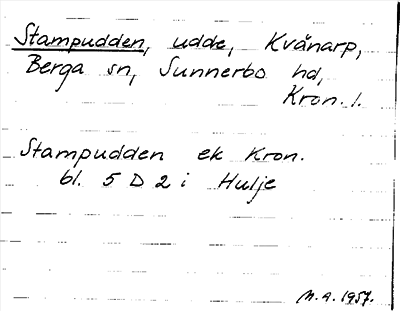 Stampudden, udde, Kvänarp,
Berga sn, Sunnerbo hd,
Kron. l.
Stampudden ek Kron.
bl. 5 D 2 i Hulje
M.A. 1957.